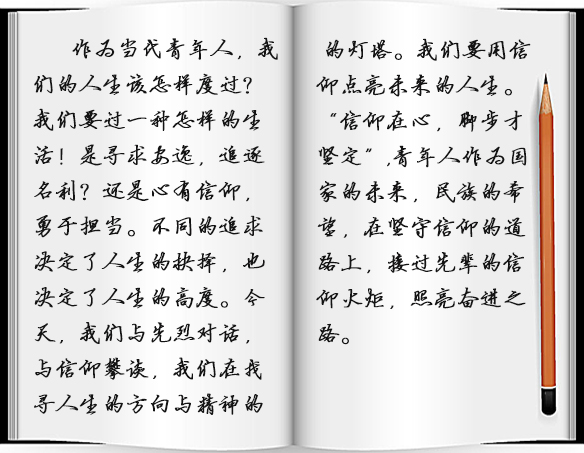 作为当代青年人，我
们的人生该怎样度过？
我们要过一种怎样的生
活！是寻求安逸，追逐
名利？还是心有信仰，
勇于担当。不同的追求
决定了人生的抉择，也
决定了人生的高度。今
天，我们与先烈对话，
与信仰攀谈，我们在找
寻人生的方向与精神的
的灯塔。我们要用信
仰点亮未来的人生。
“信仰在心，脚步才
坚定”,青年人作为国
家的未来，民族的希
望，在坚守信仰的道
路上，接过先辈的信
仰火炬，照亮奋进之
路。